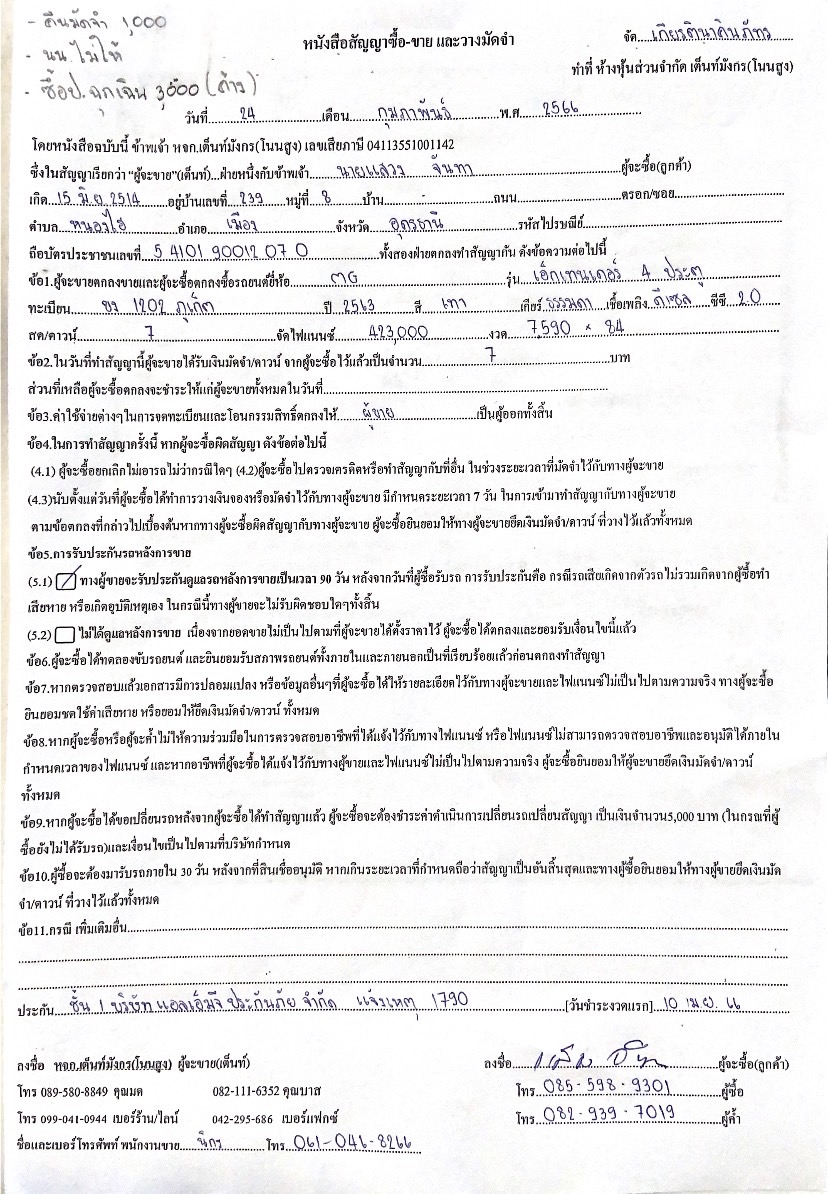 - คืนมัดจำ 1,000
- นน ไม่ให้
- ซื้อป.ฉุกเฉิน 3,500 (ค้าง)
หนังสือสัญญาซื้อ-ขาย และวางมัดจำ
จัด...เกียรตินาคินภัทร
ทำที่ ห้างหุ้นส่วนจำกัด เต็นท์มังกร(โนนสูง)
วันที่...24...เดือน...กุมภาพันธ์...พ.ศ...2566
โดยหนังสือฉบับนี้ ข้าพเจ้า หจก.เต็นท์มังกร(โนนสูง) เลขเสียภาษี 04113551001142
ซึ่งในสัญญาเรียกว่า "ผู้จะขาย"(เต็นท์)...ฝ่ายหนึ่งกับข้าพเจ้า...นายแสวง จันทา...ผู้จะซื้อ(ลูกค้า)
เกิด...15 มิ.ย. 2514...อยู่บ้านเลขที่...239...หมู่ที่...8...บ้าน...ถนน...ตรอก/ซอย...
ตำบล...หนองไฮ...อำเภอ...เมือง...จังหวัด...อุดรธานี...รหัสไปรษณีย์...
ถือบัตรประชาชนเลขที่...5 4101 90012 07 0...ทั้งสองฝ่ายตกลงทำสัญญากัน ดังข้อความต่อไปนี้
ข้อ1.ผู้จะขายตกลงขายและผู้จะซื้อตกลงซื้อรถยนต์ยี่ห้อ...MG...รุ่น...เอ็กเทนเดอร์ 4 ประตู
ทะเบียน...ขง 1202 ภูเก็ต...ปี...2563...สี...เทา...เกียร์...ธรรมดา...เชื้อเพลิง...ดีเซล...ซีซี...2.0
สด/ดาวน์...7...จัดไฟแนนซ์...423,000...งวด...7,590 × 84
ข้อ2.ในวันที่ทำสัญญานี้ผู้จะขายได้รับเงินมัดจำ/ดาวน์ จากผู้จะซื้อไว้แล้วเป็นจำนวน...7...บาท
ส่วนที่เหลือผู้จะซื้อตกลงจะชำระให้แก่ผู้จะขายทั้งหมดในวันที่...
ข้อ3.ค่าใช้จ่ายต่างๆในการจดทะเบียนและโอนกรรมสิทธิ์ตกลงให้...ผู้ขาย...เป็นผู้ออกทั้งสิ้น
ข้อ4.ในการทำสัญญาครั้งนี้ หากผู้จะซื้อผิดสัญญา ดังข้อต่อไปนี้
(4.1) ผู้จะซื้อยกเลิกไม่เอารถไม่ว่ากรณีใดๆ (4.2)ผู้จะซื้อไปตรวจเครดิตหรือทำสัญญากับที่อื่น ในช่วงระยะเวลาที่มัดจำไว้กับทางผู้จะขาย
(4.3)นับตั้งแต่วันที่ผู้จะซื้อได้ทำการวางเงินจองหรือมัดจำไว้กับทางผู้จะขาย มีกำหนดระยะเวลา 7 วัน ในการเข้ามาทำสัญญากับทางผู้จะขาย
ตามข้อตกลงที่กล่าวไปเบื้องต้นหากทางผู้จะซื้อผิดสัญญากับทางผู้จะขาย ผู้จะซื้อยินยอมให้ทางผู้จะขายยึดเงินมัดจำ/ดาวน์ ที่วางไว้แล้วทั้งหมด
ข้อ5.การรับประกันรถหลังการขาย
(5.1) ทางผู้ขายจะรับประกันดูแลรถหลังการขายเป็นเวลา 90 วัน หลังจากวันที่ผู้ซื้อรับรถ การรับประกันคือ กรณีรถเสียเกิดจากตัวรถไม่รวมเกิดจากผู้ซื้อทำ
เสียหาย หรือเกิดอุบัติเหตุเอง ในกรณีนี้ทางผู้ขายจะไม่รับผิดชอบใดๆทั้งสิ้น
(5.2) ไม่ได้ดูแลหลังการขาย เนื่องจากยอดขายไม่เป็นไปตามที่ผู้จะขายได้ตั้งราคาไว้ ผู้จะซื้อได้ตกลงและยอมรับเงื่อนไขนี้แล้ว
ข้อ6.ผู้จะซื้อได้ทดลองขับรถยนต์ และยินยอมรับสภาพรถยนต์ทั้งภายในและภายนอกเป็นที่เรียบร้อยแล้วก่อนตกลงทำสัญญา
ข้อ7.หากตรวจสอบแล้วเอกสารมีการปลอมแปลง หรือข้อมูลอื่นๆที่ผู้จะซื้อได้ให้รายละเอียดไว้กับทางผู้จะขายและไฟแนนซ์ไม่เป็นไปตามความจริง ทางผู้จะซื้อ
ยินยอมชดใช้ค่าเสียหาย หรือยอมให้ยึดเงินมัดจำ/ดาวน์ ทั้งหมด
ข้อ8.หากผู้จะซื้อหรือผู้จะค้ำไม่ให้ความร่วมมือในการตรวจสอบอาชีพที่ได้แจ้งไว้กับทางไฟแนนซ์ หรือไฟแนนซ์ไม่สามารถตรวจสอบอาชีพและอนุมัติได้ภายใน
กำหนดเวลาของไฟแนนซ์ และหากอาชีพที่ผู้จะซื้อได้แจ้งไว้กับทางผู้ขายและไฟแนนซ์ไม่เป็นไปตามความจริง ผู้จะซื้อยินยอมให้ผู้จะขายยึดเงินมัดจำ/ดาวน์
ทั้งหมด
ข้อ9.หากผู้จะซื้อ ได้ขอเปลี่ยนรถหลังจากผู้จะซื้อได้ทำสัญญาแล้ว ผู้จะซื้อจะต้องชำระค่าดำเนินการเปลี่ยนรถเปลี่ยนสัญญา เป็นเงินจำนวน5,000 บาท (ในกรณที่ผู้
ซื้อยังไม่ได้รับรถ)และเงื่อนไขเป็นไปตามที่บริษัทกำหนด
ข้อ10.ผู้ซื้อจะต้องมารับรถภายใน 30 วัน หลังจากที่สินเชื่ออนุมัติ หากเกินระยะเวลาที่กำหนดถือว่าสัญญาเป็นอันสิ้นสุดและทางผู้ซื้อยินยอมให้ทางผู้ขายยึดเงินมัด
จำ/ดาวน์ ที่วางไว้แล้วทั้งหมด
ข้อ11.กรณี เพิ่มเติมอื่น...
ประกัน...ชั้น 1 บริษัท แอลเอ็มจี ประกันภัย จำกัด แจ้งเหตุ 1790...[วันชำระงวดแรก]...10 เม.ย. 66
ลงชื่อ หจก.เต็นท์มังกร(โนนสูง) ผู้จะขาย(เต็นท์)
ลงชื่อ...ผู้จะซื้อ(ลูกค้า)
โทร 089-580-8849 คุณมด 082-111-6352 คุณบาส
โทร...085-598-9301...ผู้ซื้อ
โทร 099-041-0944 เบอร์ร้าน/ไลน์ 042-295-686 เบอร์แฟกซ์
โทร...082-939-7019...ผู้ค้ำ
ชื่อและเบอร์โทรศัพท์ พนักงานขาย...นิกร...โทร...061-046-8266